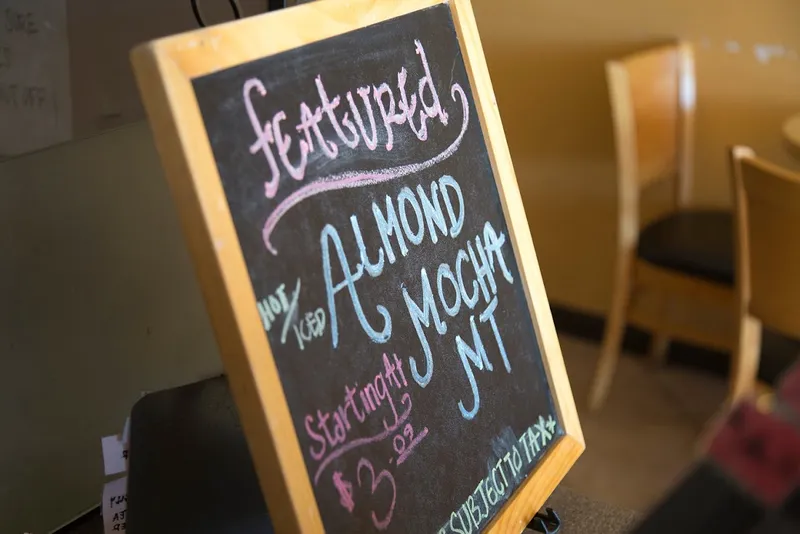 featured
HOT/ICED
ALMOND
MOCHA
MT
Starting At
$3.09
SUBJECT TO TAX